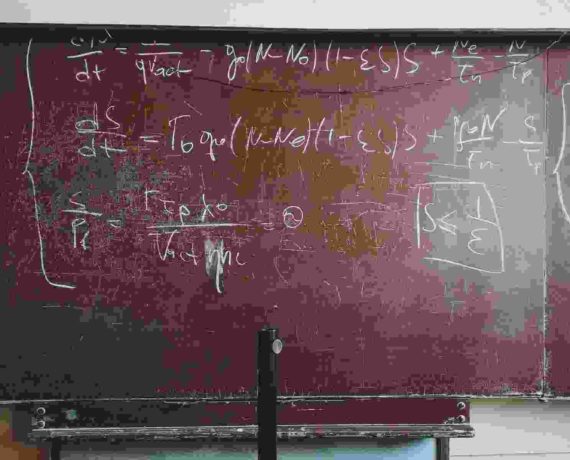 dN/dt = I/qVact - g₀(N-N₀)(1-εS)S + Ne/τn - N/τp
dS/dt = Γ₀g₀(N-N₀)(1-εS)S + N/τn - S/τp
S/Pf = Γτpλ₀/Vactηhc = ② S ≤ 1/ε